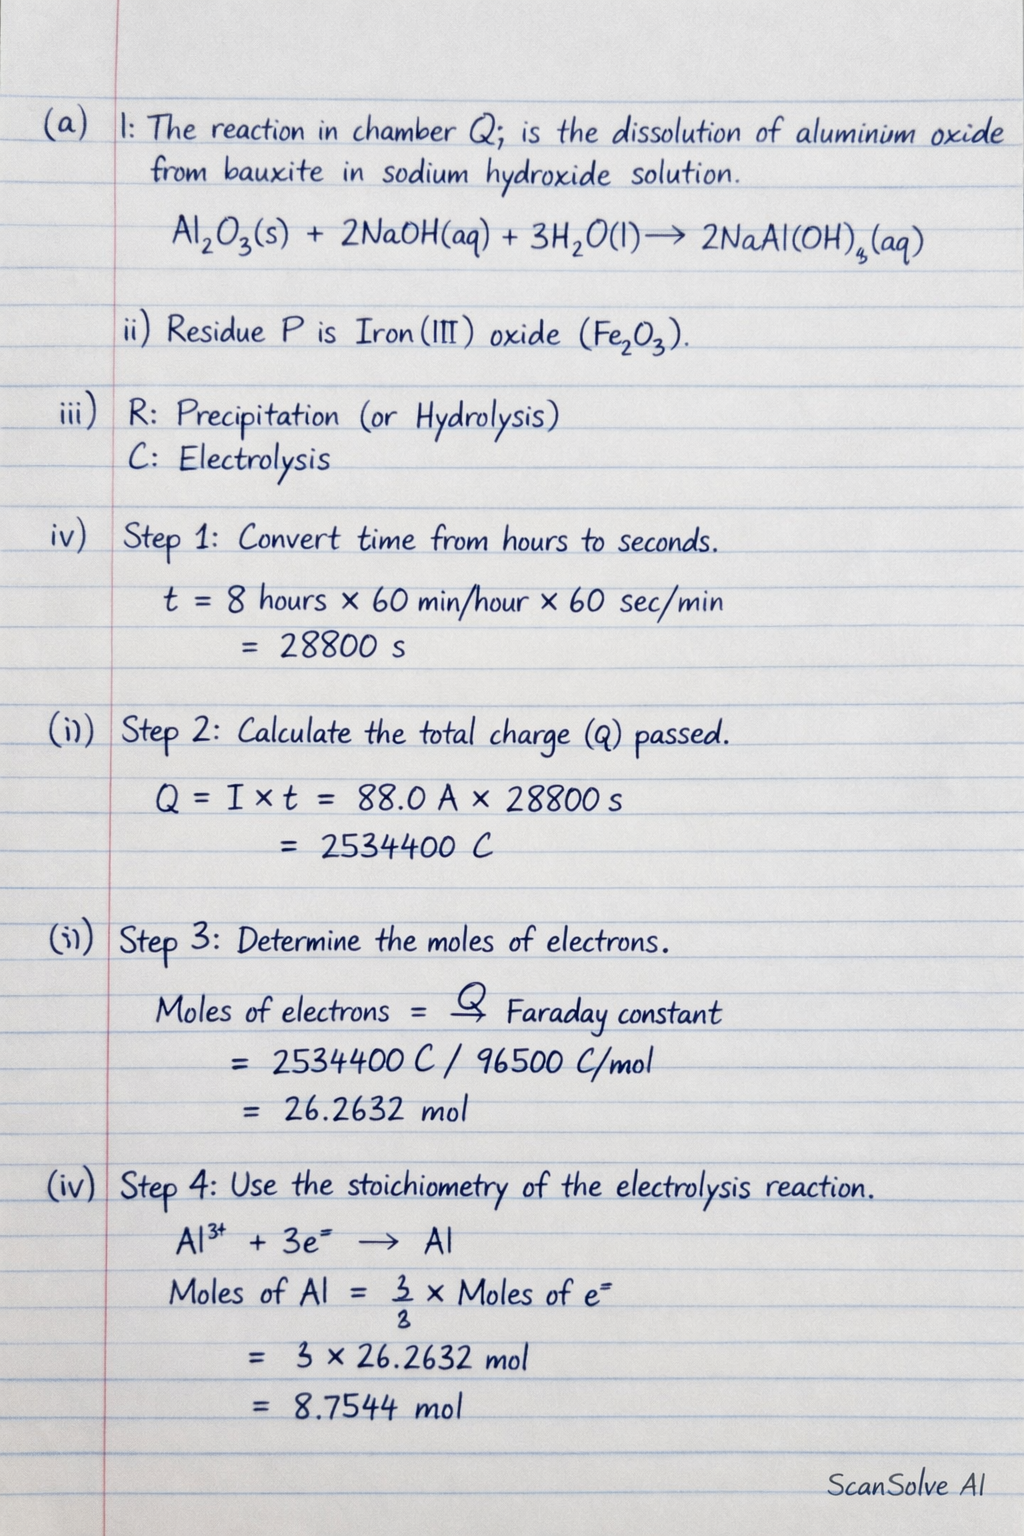 (a) I: The reaction in chamber Q; is the dissolution of aluminium oxide
from bauxite in sodium hydroxide solution.
Al₂O₃(s) + 2NaOH(aq) + 3H₂O(l) → 2NaAl(OH)₃(aq)
ii) Residue P is Iron (III) oxide (Fe₂O₃).
iii) R: Precipitation (or Hydrolysis)
C: Electrolysis
iv) Step 1: Convert time from hours to seconds.
t = 8 hours × 60 min/hour × 60 sec/min
= 28800 s
(i) Step 2: Calculate the total charge (Q) passed.
Q = I × t = 88.0 A × 28800 s
= 2534400 C
(i) Step 3: Determine the moles of electrons.
Moles of electrons = Q → Faraday constant
= 2534400 C / 96500 C/mol
= 26.2632 mol
(iv) Step 4: Use the stoichiometry of the electrolysis reaction.
Al³⁺ + 3e⁼ → Al
Moles of Al = 3/3 × Moles of e⁼
= 3 × 26.2632 mol
= 8.7544 mol
ScanSolve AI